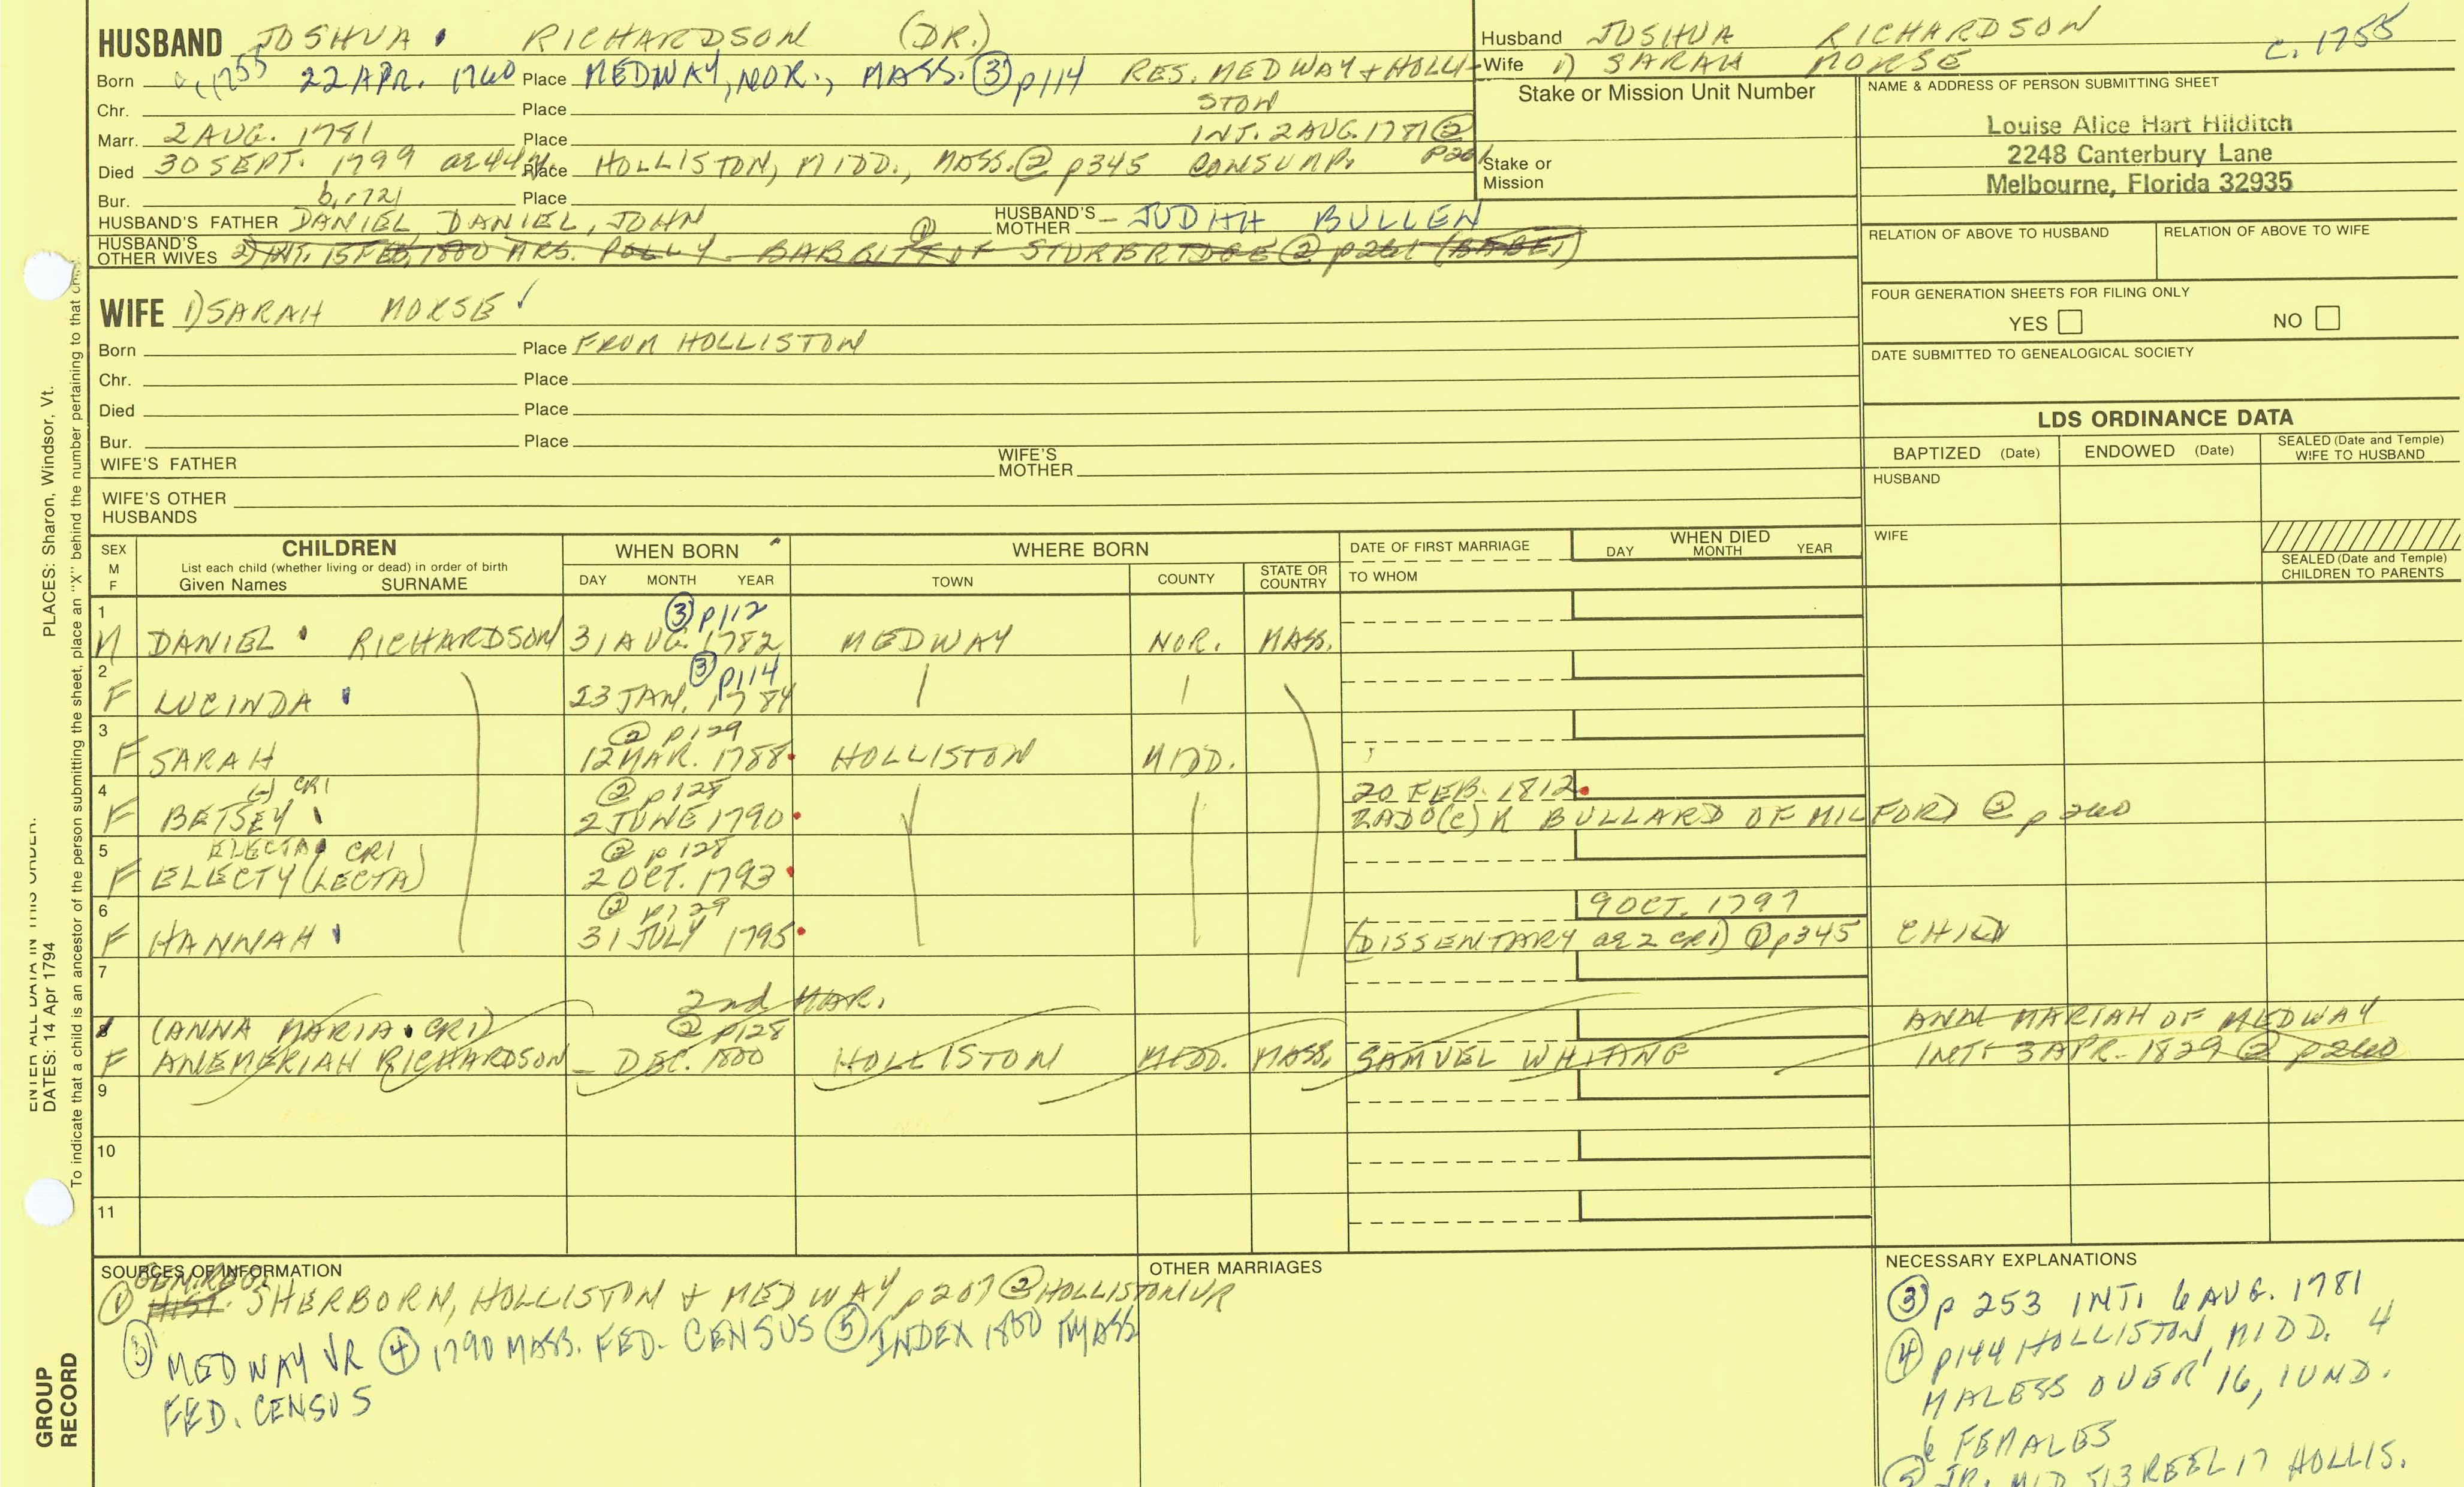 HUSBAND JOSHUA RICHARDSON (DR.)
Born c. 1755 22 APR. 1760 Place MEDWAY, NOR., MASS. (3) p114 RES. MEDWAY + HOLLI-
STON
Chr. Place
Marr. 2 AUG. 1781 Place INT. 2 AUG. 1781 (2)
p261
Died 30 SEPT. 1799 ae 44 y. Place HOLLISTON, MIDD., MASS. (2) p345 CONSUMP.
Bur. Place
b. 1721
HUSBAND'S FATHER DANIEL, DANIEL, JOHN (1) HUSBAND'S MOTHER JUDITH BULLEN
HUSBAND'S OTHER WIVES 2) INT. 15 FEB. 1800 MRS. POLLY BABBITT OF STURBRIDGE (2) p261 (BABBET)
Husband JOSHUA RICHARDSON c. 1755
Wife 1) SARAH MORSE
Stake or Mission Unit Number
Stake or Mission
NAME & ADDRESS OF PERSON SUBMITTING SHEET
Louise Alice Hart Hilditch
2248 Canterbury Lane
Melbourne, Florida 32935
RELATION OF ABOVE TO HUSBAND RELATION OF ABOVE TO WIFE
FOUR GENERATION SHEETS FOR FILING ONLY
YES NO
DATE SUBMITTED TO GENEALOGICAL SOCIETY
WIFE 1) SARAH MORSE ✓
Born Place FROM HOLLISTON
Chr. Place
Died Place
Bur. Place
WIFE'S FATHER WIFE'S MOTHER
WIFE'S OTHER HUSBANDS
LDS ORDINANCE DATA
BAPTIZED (Date) ENDOWED (Date) SEALED (Date and Temple) WIFE TO HUSBAND
HUSBAND
WIFE
SEALED (Date and Temple) CHILDREN TO PARENTS
SEX M F CHILDREN List each child (whether living or dead) in order of birth Given Names SURNAME
WHEN BORN DAY MONTH YEAR
WHERE BORN TOWN COUNTY STATE OR COUNTRY
DATE OF FIRST MARRIAGE TO WHOM
WHEN DIED DAY MONTH YEAR
1 (3) p112
M DANIEL RICHARDSON 31 AUG. 1782 MEDWAY NOR. MASS.
2 (3) p114
F LUCINDA 23 JAN. 1784
3 (2) p129
F SARAH 12 MAR. 1788 HOLLISTON MIDD.
4 CR1 (2) p128 20 FEB. 1812
F BETSEY 2 JUNE 1790 ZADO(C) K BULLARD OF MILFORD (2) p260
5 ELECTA CR1 (2) p128
F ELECTY (LECTA) 2 OCT. 1793
6 (2) p129 9 OCT. 1797
F HANNAH 31 JULY 1795 (DISSENTARY ae 2 CR1) (2) p345 CHILD
7
2nd MAR.
8 (ANNA MARIA CR1) (2) p128 ANN MARIAH OF MEDWAY
F ANEMERIAH RICHARDSON _ DEC. 1800 HOLLISTON MIDD. MASS. SAMUEL WHITING INT. 3 APR. 1829 (2) p260
9
10
11
SOURCES OF INFORMATION
GEN. REG.
(1) HIST. SHERBORN, HOLLISTON & MEDWAY p207 (2) HOLLISTON VR
(3) MEDWAY VR (4) 1790 MASS. FED. CENSUS (5) INDEX 1800 MASS
FED. CENSUS
OTHER MARRIAGES
NECESSARY EXPLANATIONS
(3) p 253 INT. 6 AUG. 1781
(4) p144 HOLLISTON, MIDD. 4
MALESS OVER 16, 1 UND.
6 FEMALES
(5) JR. MID 513 REEL 17 HOLLIS.
PLACES: Sharon, Windsor, Vt.
ENTER ALL DATA IN THIS ORDER:
DATES: 14 Apr 1794
To indicate that a child is an ancestor of the person submitting the sheet, place an "X" behind the number pertaining to that
GROUP
RECORD